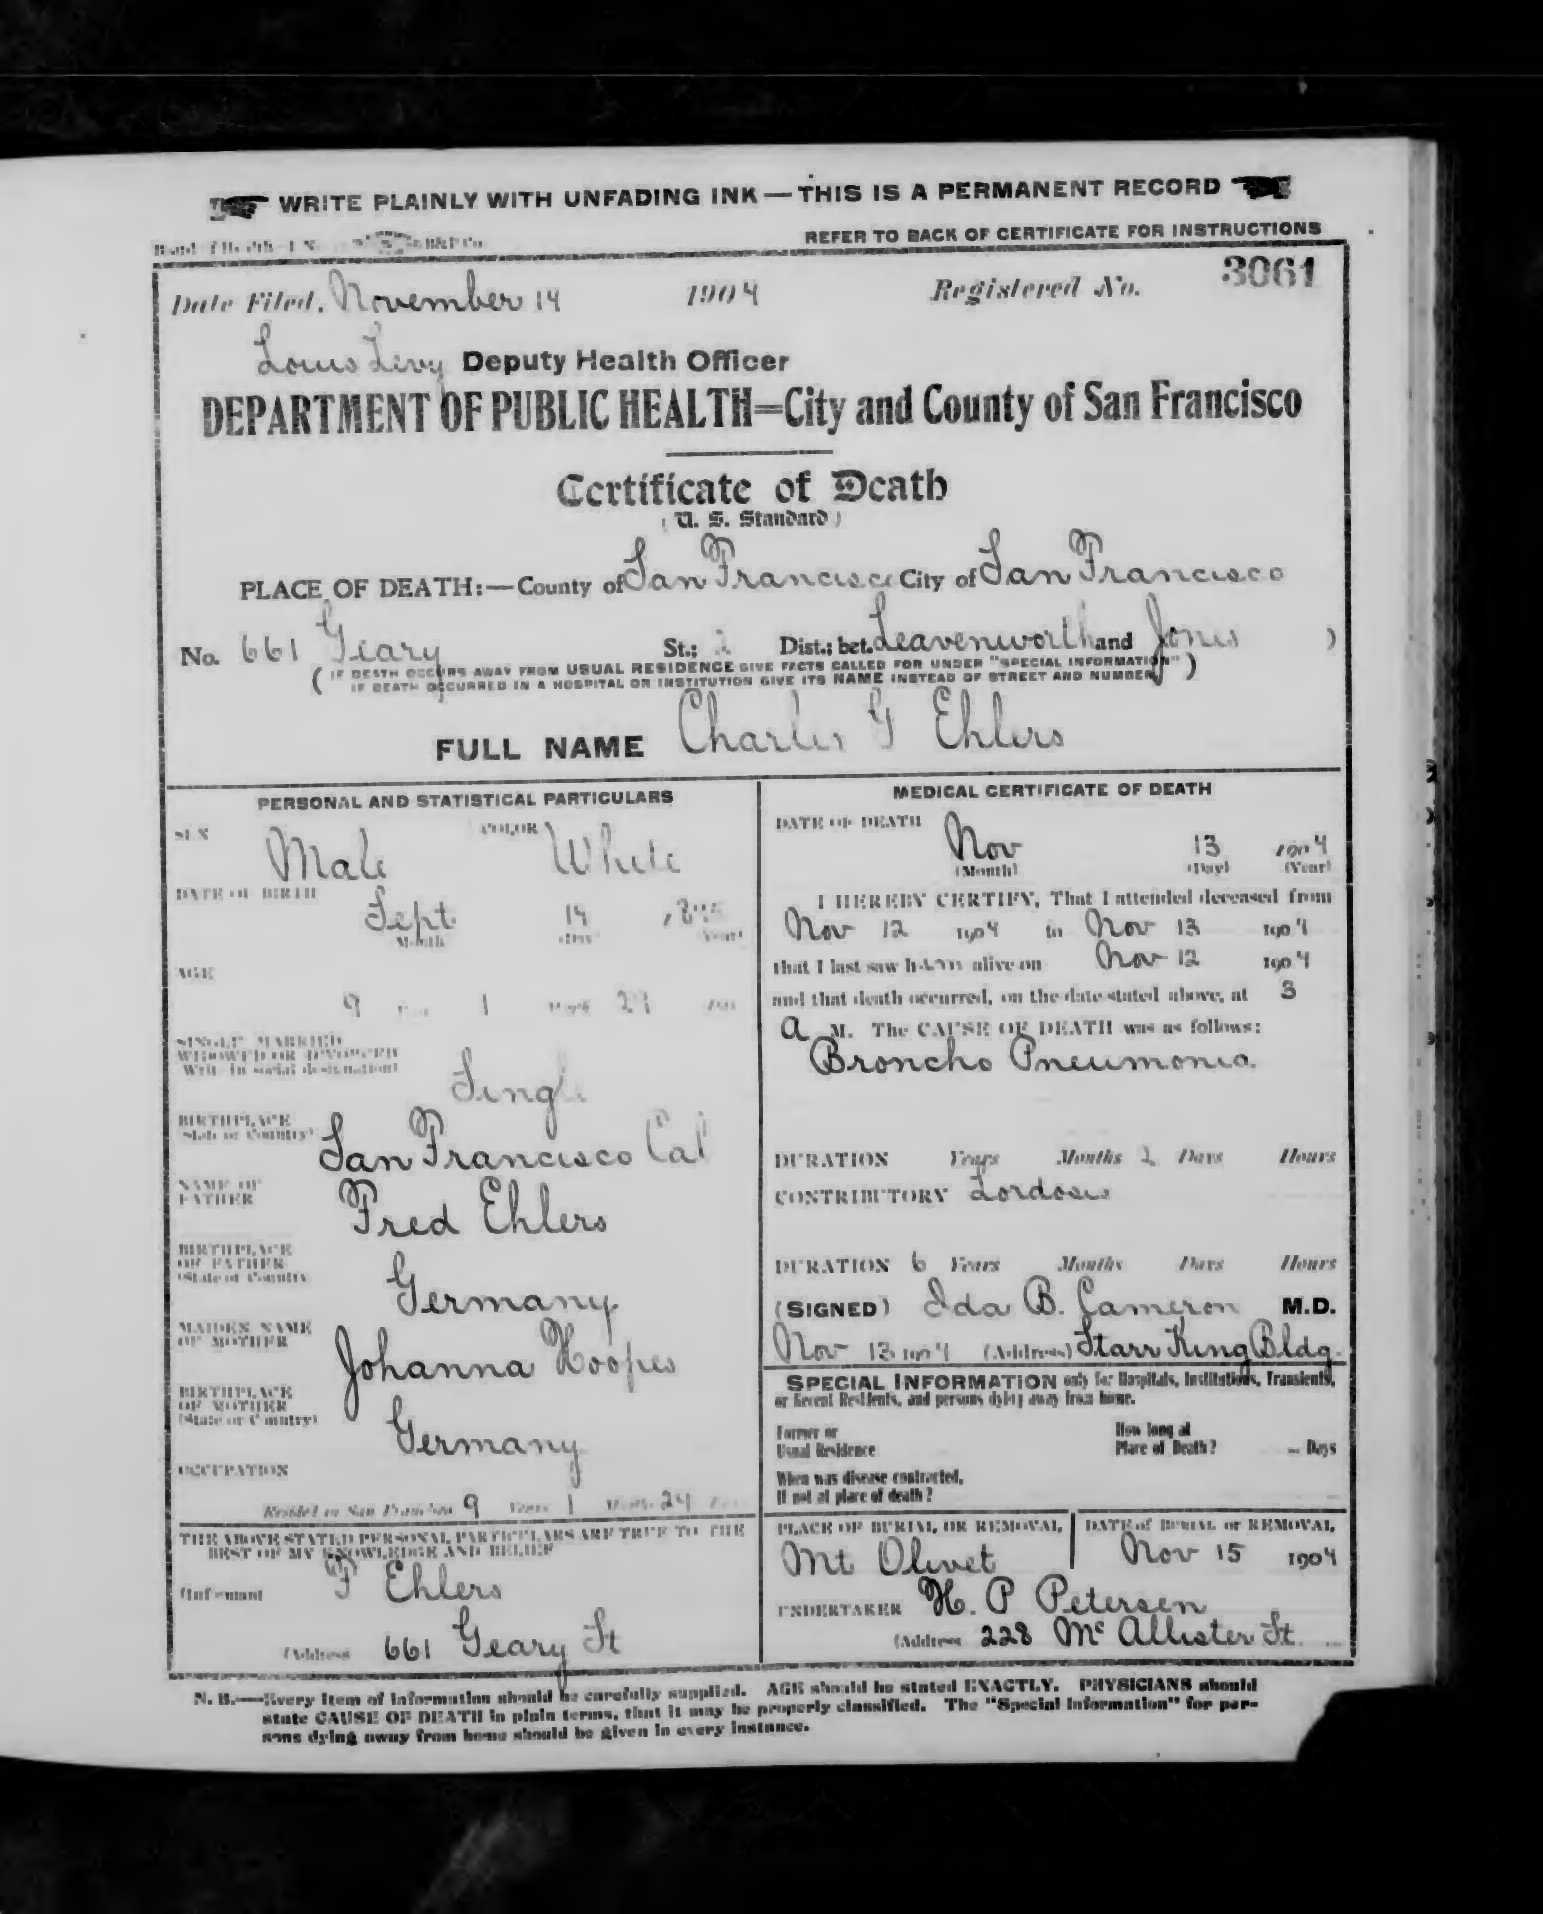 WRITE PLAINLY WITH UNFADING INK — THIS IS A PERMANENT RECORD
REFER TO BACK OF CERTIFICATE FOR INSTRUCTIONS
Date Filed, November 14 1904 Registered No. 3061
Louis Levy Deputy Health Officer
DEPARTMENT OF PUBLIC HEALTH=City and County of San Francisco
Certificate of Death
( U. S. Standard )
PLACE OF DEATH:—County of San Francisco City of San Francisco
No. 661 Geary St.; 2 Dist.; bet. Leavenworth and Jones )
( IF DEATH OCCURS AWAY FROM USUAL RESIDENCE GIVE FACTS CALLED FOR UNDER "SPECIAL INFORMATION" )
IF DEATH OCCURRED IN A HOSPITAL OR INSTITUTION GIVE ITS NAME INSTEAD OF STREET AND NUMBER
FULL NAME Charles G Ehlers
PERSONAL AND STATISTICAL PARTICULARS
SEX Male COLOR White
DATE OF BIRTH
Sept. 14 1895
Month (Day) Year)
AGE
9 1 29
SINGLE MARRIED
WIDOWED OR DIVORCED
Write in social designation)
Single
BIRTHPLACE
State or Country)
San Francisco Cal
NAME OF
FATHER
Fred Ehlers
BIRTHPLACE
OF FATHER
(State or Country
Germany
MAIDEN NAME
OF MOTHER
Johanna Hoopes
BIRTHPLACE
OF MOTHER
(State or Country)
Germany
OCCUPATION
Resided in San Francisco 9 Years 1 Months 29
THE ABOVE STATED PERSONAL PARTICULARS ARE TRUE TO THE
BEST OF MY KNOWLEDGE AND BELIEF
(Informant F Ehlers
(Address 661 Geary St
MEDICAL CERTIFICATE OF DEATH
DATE OF DEATH
Nov 13 1904
(Month) (Day) (Year)
I HEREBY CERTIFY, That I attended deceased from
Nov 12 1904 to Nov 13 1904
that I last saw him alive on Nov 12 1904
and that death occurred, on the date stated above, at 3
A M. The CAUSE OF DEATH was as follows:
Broncho Pneumonia.
DURATION Years Months 2 Days Hours
CONTRIBUTORY Lordosis
DURATION 6 Years Months Days Hours
(SIGNED) Ida B. Cameron M.D.
Nov 13 1904 (Address) Starr King Bldg.
SPECIAL INFORMATION only for Hospitals, Institutions, Transients,
or Recent Residents, and persons dying away from home.
Former or
Usual Residence
How long at
Place of Death? Days
When was disease contracted,
If not at place of death?
PLACE OF BURIAL OR REMOVAL
Mt Olivet
DATE of BURIAL or REMOVAL
Nov 15 1904
UNDERTAKER H. P Petersen
(Address 228 McAllister St.
N. B.—Every item of information should be carefully supplied. AGE should be stated EXACTLY. PHYSICIANS should
state CAUSE OF DEATH in plain terms, that it may be properly classified. The "Special Information" for per-
sons dying away from home should be given in every instance.